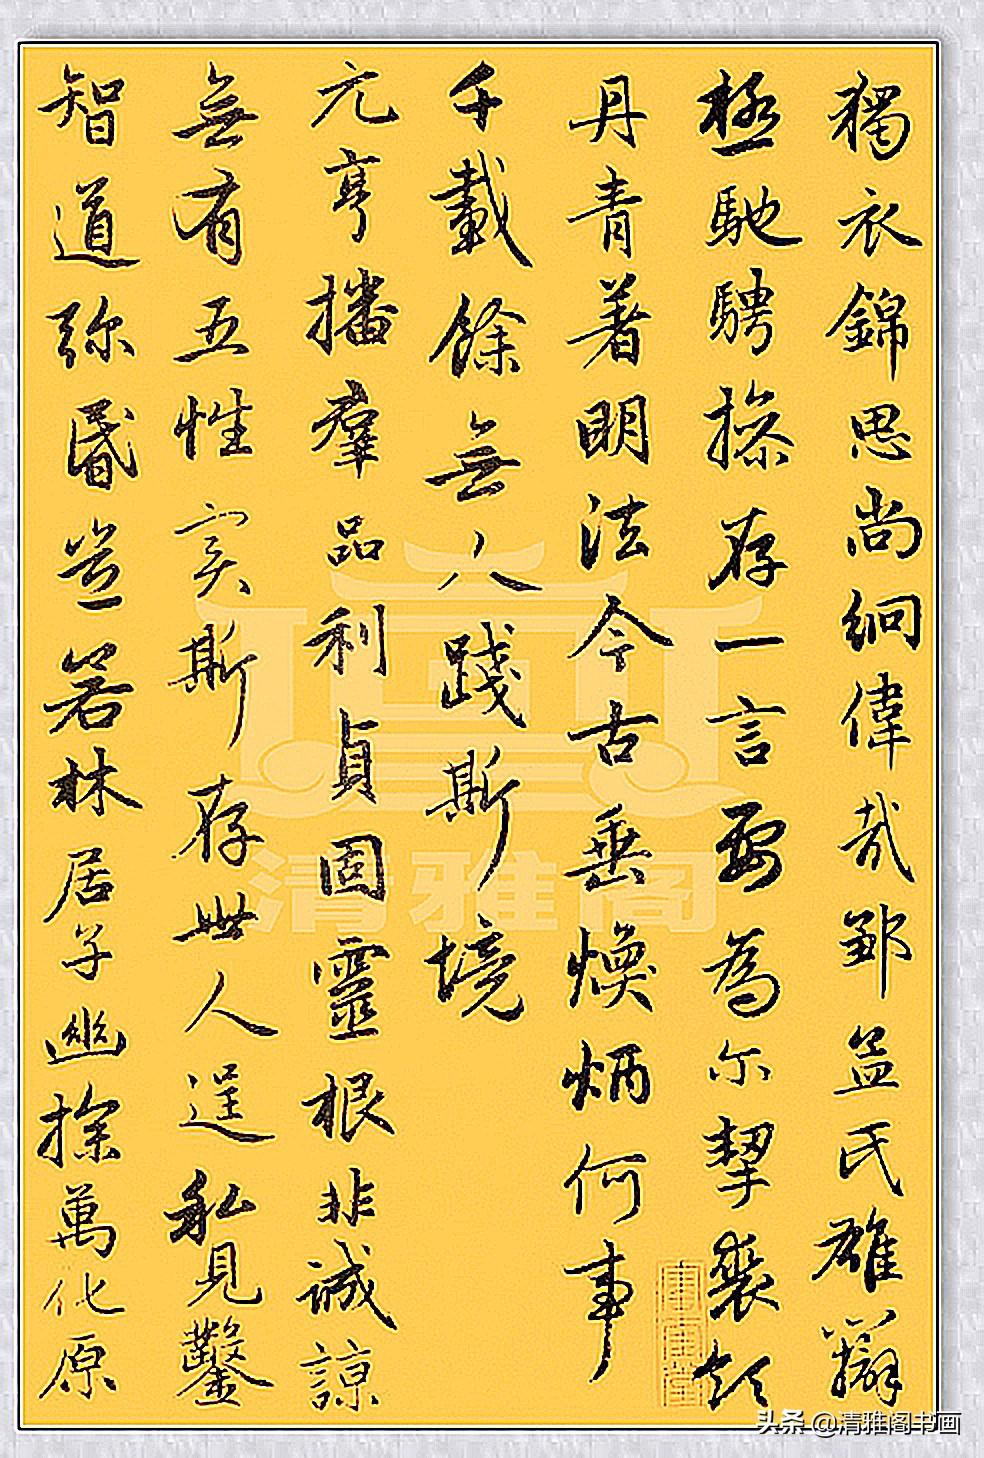 獨衣錦思尚絅偉哉鄒孟氏雄辯
極馳騁操存一言要為尔挈裘領
丹青著明法今古垂煥炳何事
千載餘無人踐斯境
元亨播羣品利貞固靈根非誠諒
無有五性实斯存世人逞私見鑿
智道弥昏豈若林居子幽探萬化原
清雅阁
头条 @清雅阁书画